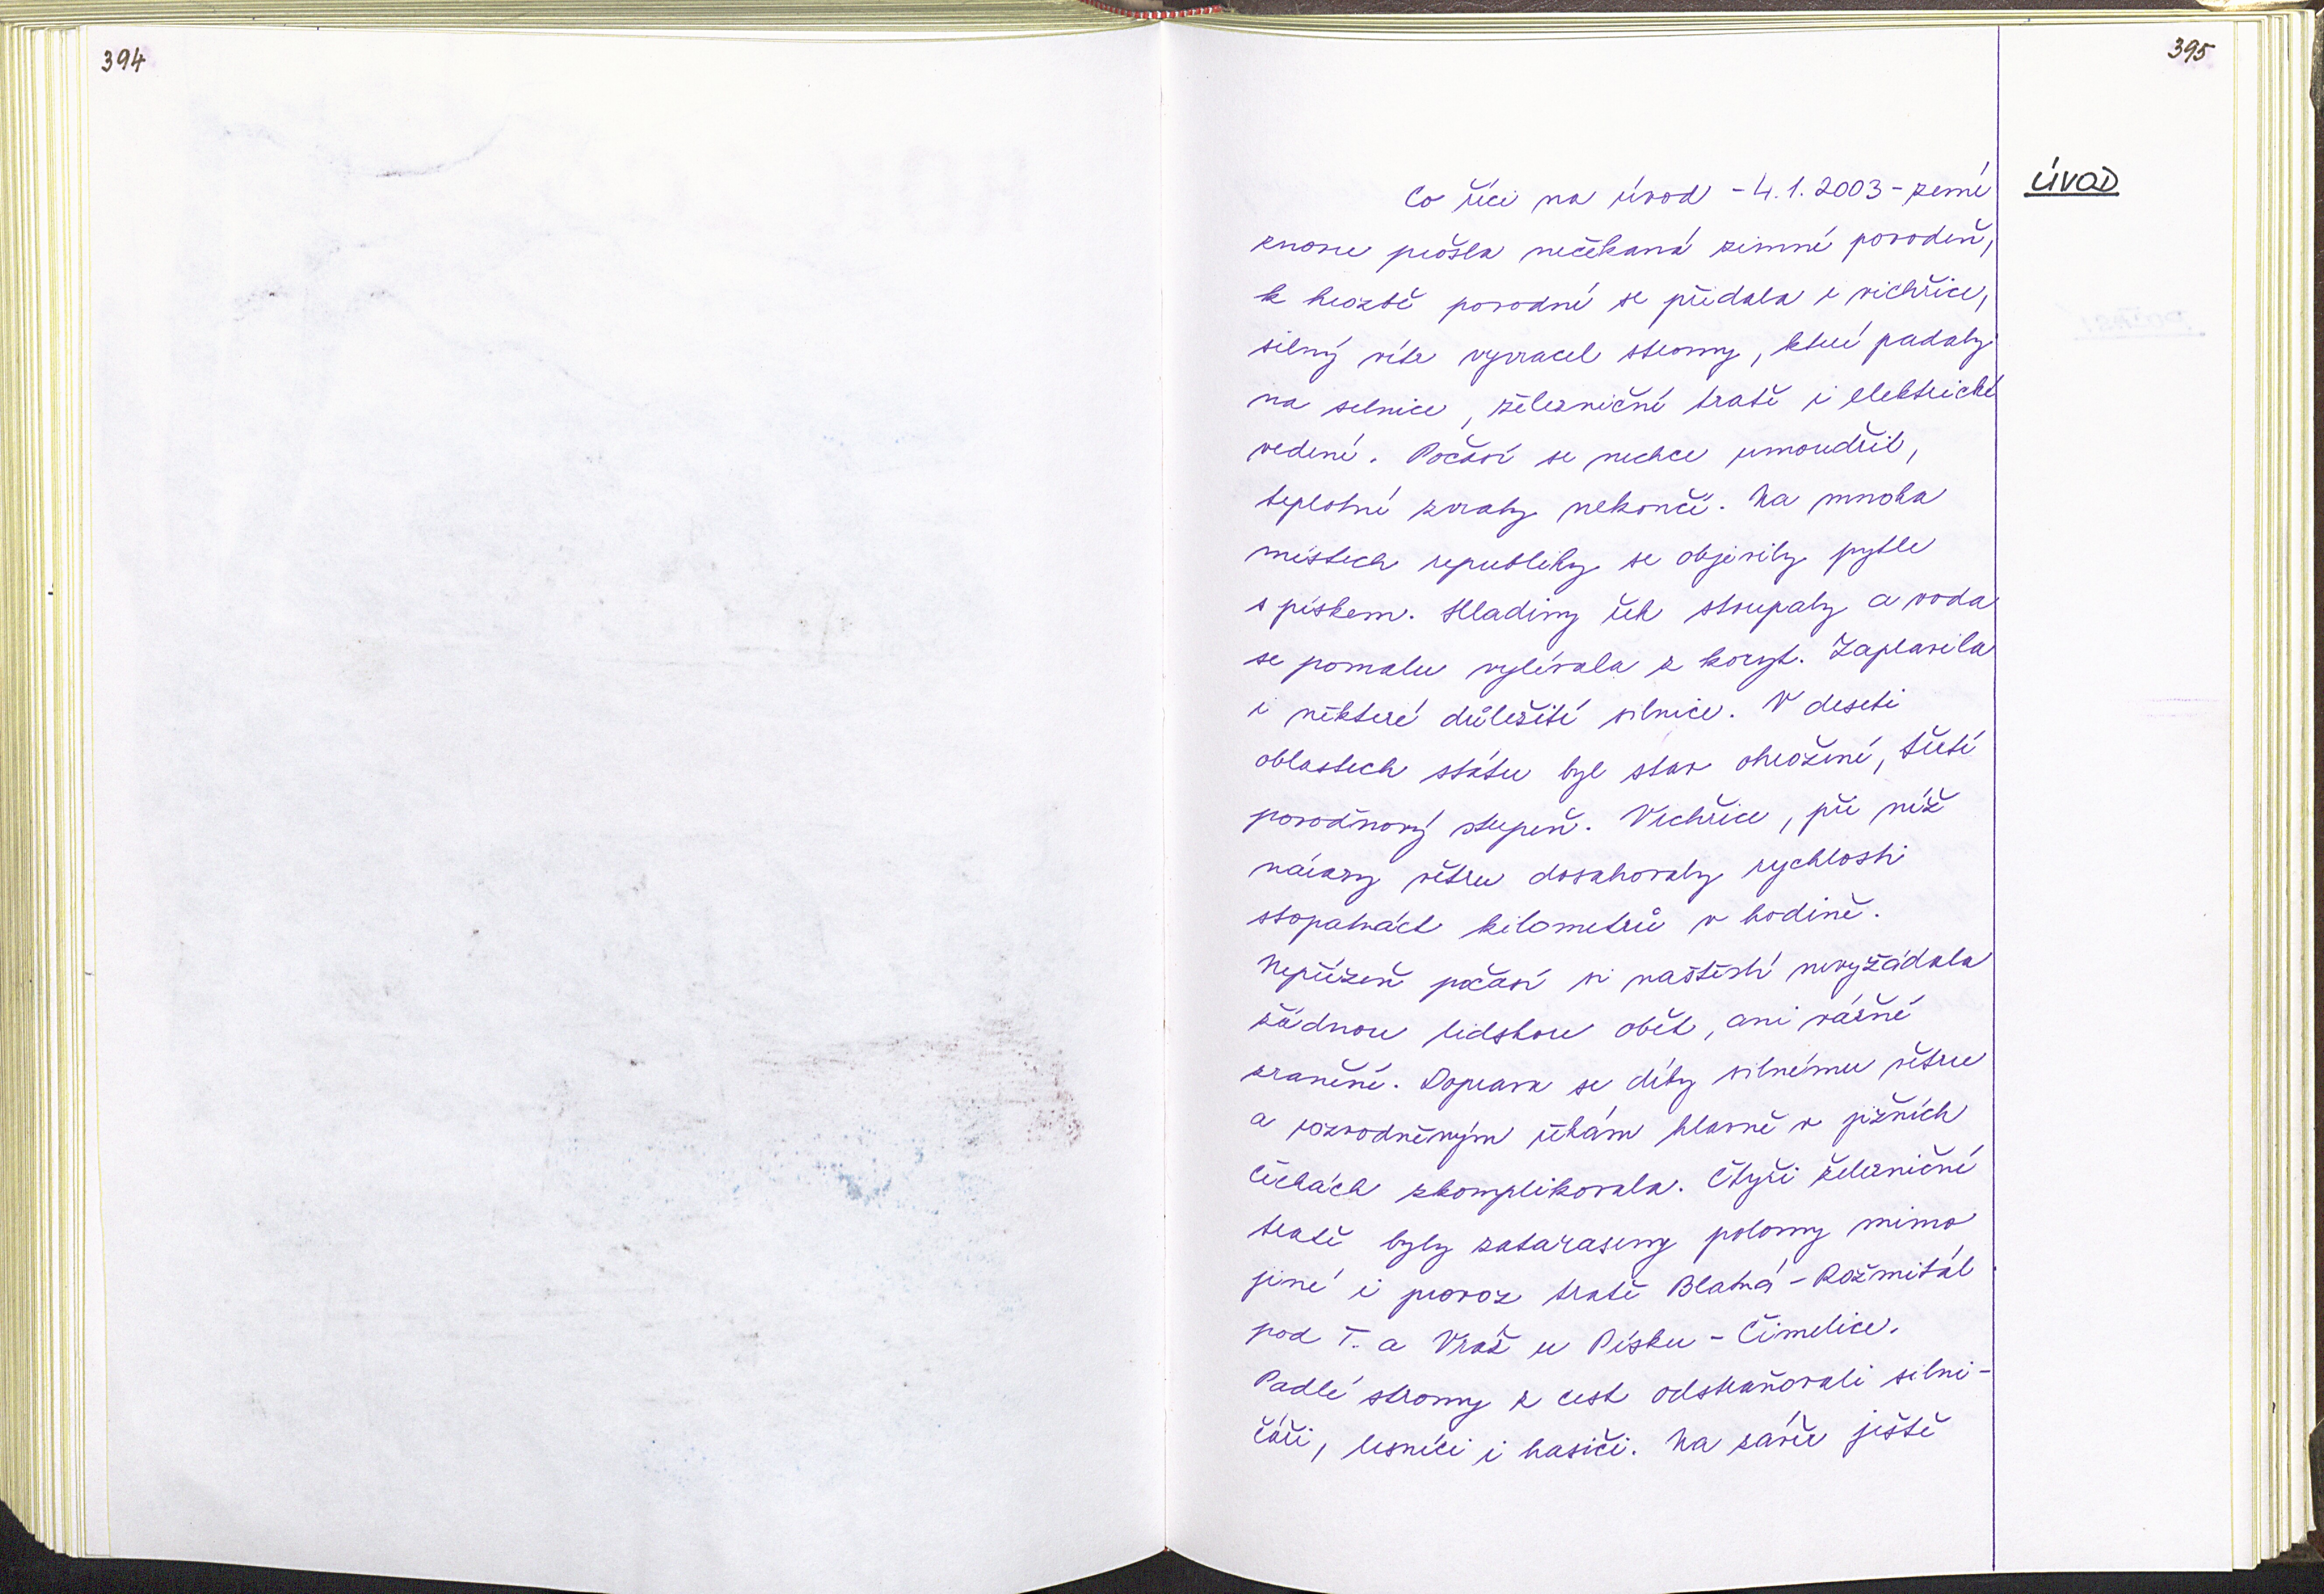 394
395
ÚVOD
Co říci na úvod - 4.1.2003 - zemi
znovu prošla nečekaná zimní povodeň,
k hrozbě povodní se přidala i vichřice,
silný vítr vyvracel stromy, které padaly
na silnice, železniční tratě i elektrické
vedení. Počásí se nechce umoudřit,
teplotní zvraty nekončí. Na mnoha
místech republiky se objevily pytle
s pískem. Hladiny řek stoupaly a voda
se pomalu vylévala z koryt. Zaplavila
i některé důležité silnice. V deseti
oblastech státu byl stav ohrožení, třetí
povodňový stupeň. Vichřice, při níž
nárazy větru dosahovaly rychlosti
stopatnáct kilometrů v hodině.
Nepřízeň počasí si naštěstí nevyžádala
žádnou lidskou oběť, ani vážné
zranění. Doprava se díky silnému větru
a rozvodněným řekám hlavně v jižních
Čechách zkomplikovala. Čtyři železniční
tratě byly zataraseny polomy mimo
jiné i provoz tratě Blatná - Rožmitál
pod T. a Vráž u Písku - Čimelice.
Padlé stromy z cest odstraňovali silni-
čáři, lesníci i hasiči. Na závěr ještě